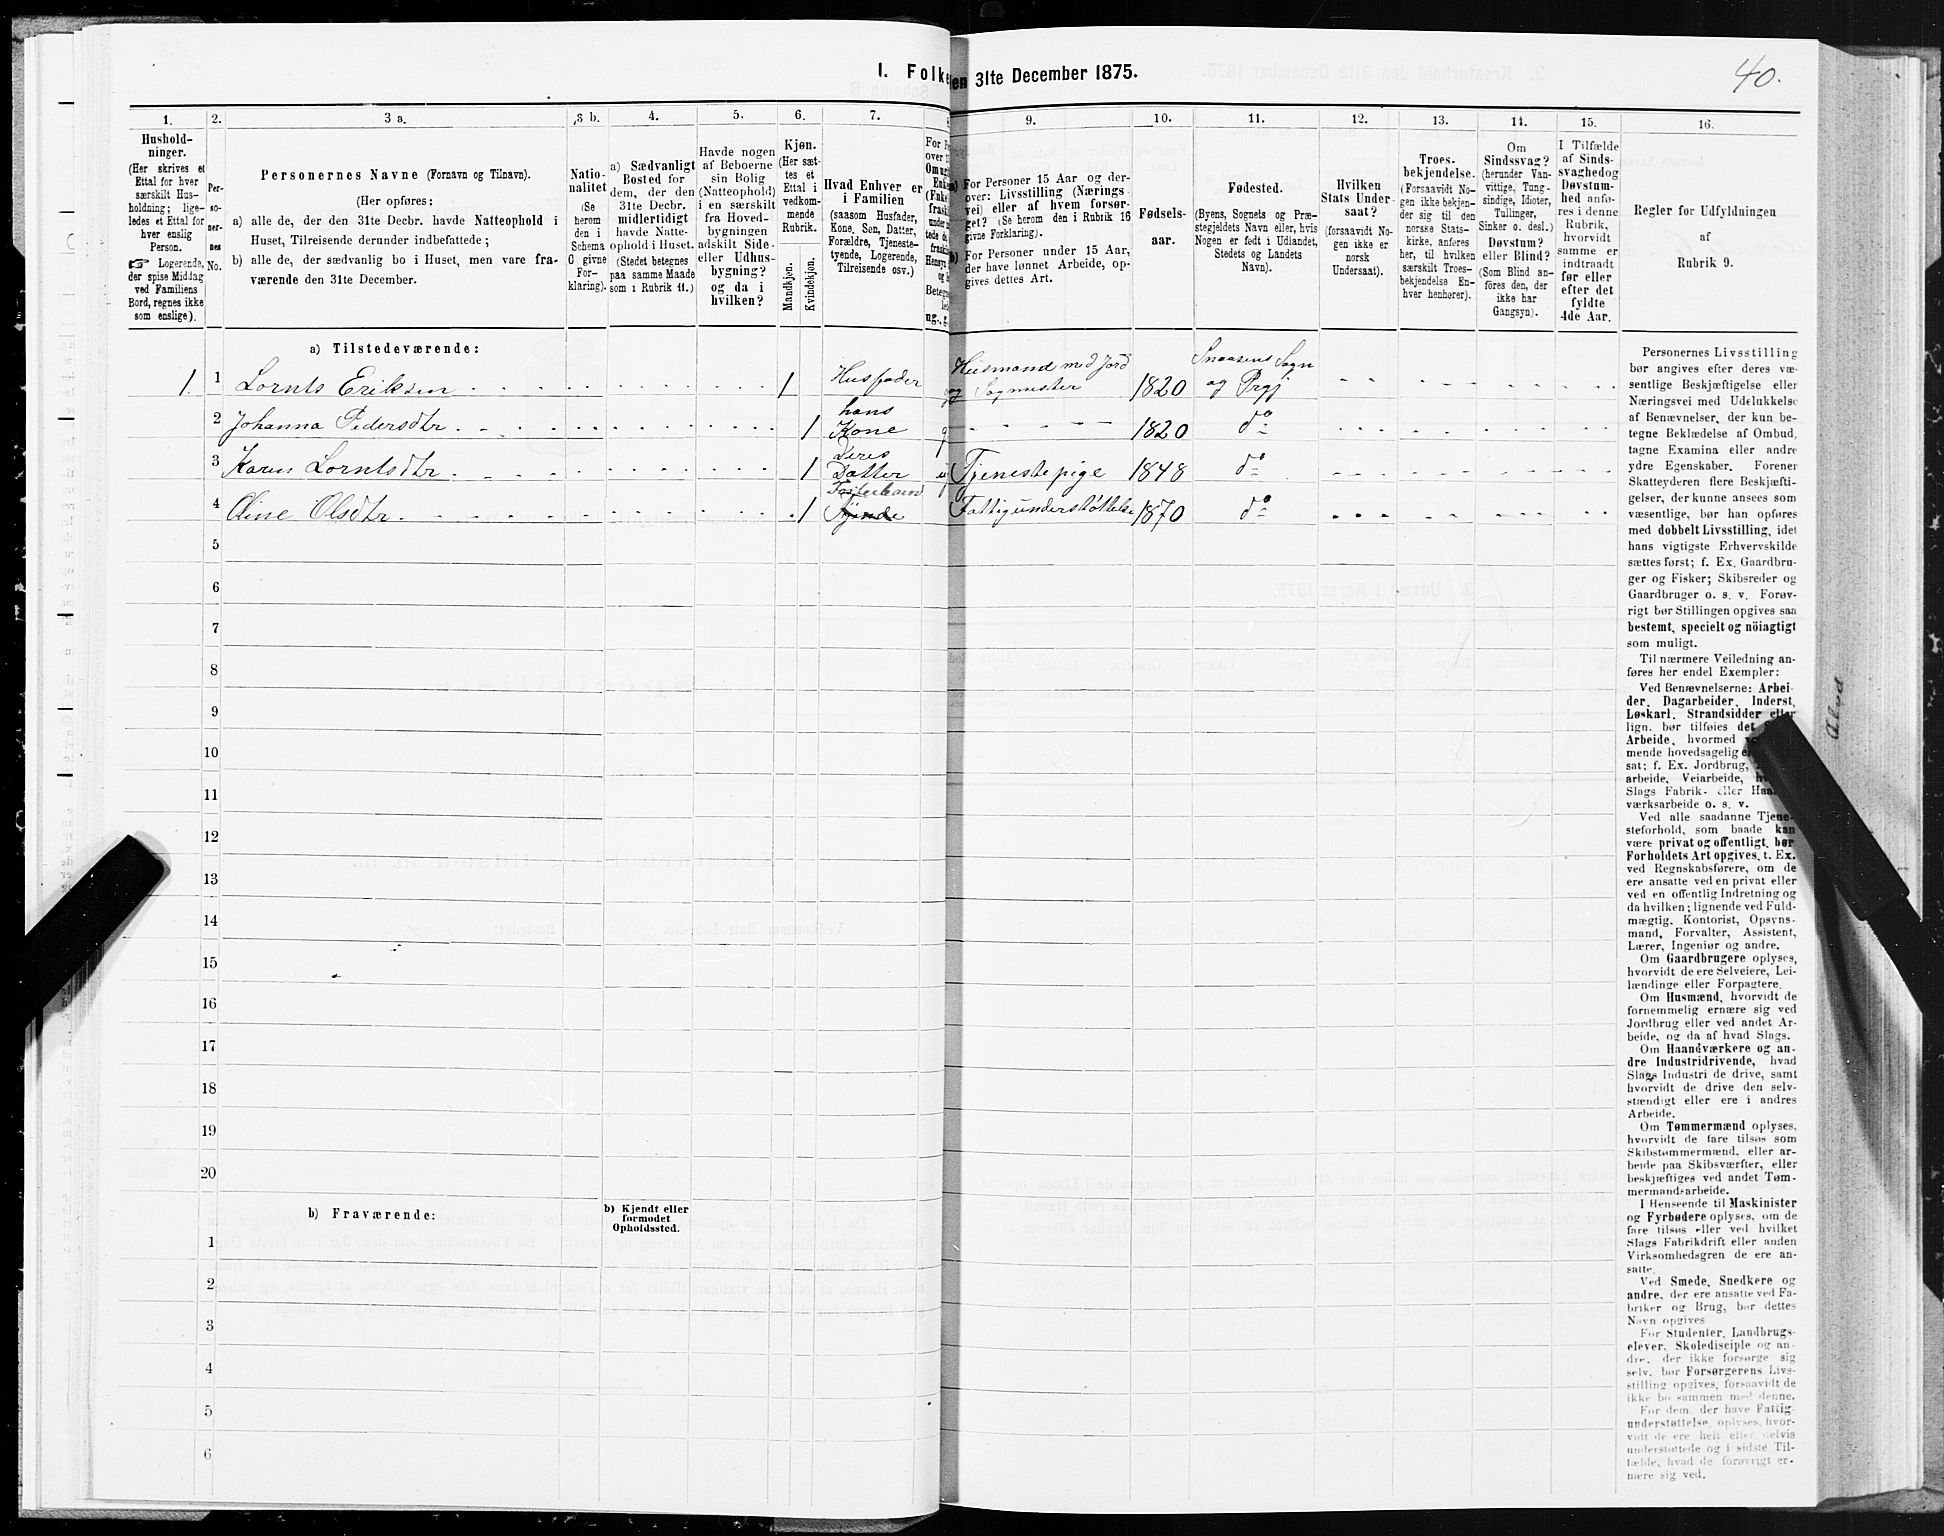 40.
I. Folke
en 31te December 1875.
1.
2.
3 a.
3 b.
4.
5.
6.
7.
9.
10.
11.
12.
13.
14.
15.
16.
Hushold-
ninger.
(Her skrives et
Ettal for hver
særskilt Hus-
holdning; lige-
ledes et Ettal for
hver enslig
Person.
☞ Logerende,
der spise Middag
ved Familiens
Bord, regnes ikke
som enslige).
Per-
so-
ner-
nes
No.
Personernes Navne (Fornavn og Tilnavn).
(Her opføres:
a) alle de, der den 31te Decbr. havde Natteophold i
Huset, Tilreisende derunder indbefattede;
b) alle de, der sædvanlig bo i Huset, men vare fra-
værende den 31te December.
Natio-
nalitet
(Se
herom
den i
Schema
C givne
For-
klaring).
a) Sædvanligt
Bosted for
dem, der den
31te Decbr.
midlertidigt
havde Natte-
ophold i Huset.
(Stedet betegnes
paa samme Maade
som i Rubrik 11.)
Havde nogen
af Beboerne
sin Bolig
(Natteophold)
i en særskilt
fra Hoved-
bygningen
adskilt Side-
eller Udhus-
bygning?
og da i
hvilken?
Kjøn.
(Her sæt-
tes et
Ettal i
vedkom-
mende
Rubrik.
Mandkjøn.
Kvindekjøn.
Hvad Enhver er
i Familien
(saasom Husfader,
Kone, Søn, Datter,
Forældre, Tjeneste-
tyende, Logerende,
Tilreisende osv.)
a) For Personer 15 Aar og der-
over: Livsstilling (Nærings-
vei) eller af hvem forsør-
get? (Se herom den i Rubrik 16
givne Forklaring).
b) For Personer under 15 Aar,
der have lønnet Arbeide, op-
gives dettes Art.
Fødsels-
aar.
Fødested.
(Byens, Sognets og Præ-
stegjeldets Navn eller, hvis
Nogen er født i Udlandet,
Stedets og Landets
Navn).
Hvilken
Stats Under-
saat?
(forsaavidt No-
gen ikke er
norsk
Undersaat).
Troes-
bekjendelse.
(Forsaavidt No-
gen ikke bekjen-
der sig til den
norske Stats-
kirke, anføres
her, til hvilken
særskilt Troes-
bekjendelse En-
hver henhører).
Om
Sindssvag?
(herunder Van-
vittige, Tung-
sindige, Idioter,
Tullinger,
Sinker o. desl.)
Døvstum?
eller Blind?
(Som Blind an-
føres den, der
ikke har
Gangsyn).
I Tilfælde
af Sinds-
svaghedog
Døvstum-
hed anfø-
res i denne
Rubrik,
hvorvidt
samme er
indtraadt
før eller
efter det
fyldte
4de Aar.
Regler for Udfyldningen
af
Rubrik 9.
a) Tilstedeværende:
1. 1 Lornts Eriksen 1 Husfader Husmand med Jord og Sagmester 1820 Snaasens Sogn og Prgj
2 Johanna Pedersdtr. 1 hans Kone g 1820 do
3 Karen Lorntsdtr. 1 Deres Datter Tjenestepige 1848 do
4 Oline Olsdtr. 1 Fosterbarn Fattigunderstøttelse 1870 do
5
6
7
8
9
10
11
12
13
14
15
16
17
18
19
20
b) Fraværende:
b) Kjendt eller
formodet
Opholdssted.
1
2
3
4
5
6
Personernes Livsstilling
bør angives efter deres væ-
sentlige Beskjæftigelse eller
Næringsvei med Udelukkelse
af Benævnelser, der kun be-
tegne Beklædelse af Ombud,
tagne Examina eller andre
ydre Egenskaber. Forener
Skatteyderen flere Beskjæfti-
gelser, der kunne ansees som
væsentlige, bør han opføres
med dobbelt Livsstilling, idet
hans vigtigste Erhvervskilde
sættes først; f. Ex. Gaardbru-
ger og Fisker; Skibsreder og
Gaardbruger o. s. v. Forøv-
rigt bør Stillingen opgives saa
bestemt, specielt og nöiagtigt
som muligt.
Til nærmere Veiledning an-
føres her endel Exempler:
Ved Benævnelserne: Arbei-
der, Dagarbeider, Inderst,
Løskarl, Strandsidder eller
lign. bør tilføies det
Arbeide, hvormed
mende hovedsagelig
sat; f. Ex. Jordbrug,
arbeide, Veiarbeide,
Slags Fabrik- eller
værksarbeide o. s. v.
Ved alle saadanne Tjene-
steforhold, som baade kan
være privat og offentligt, bør
Forholdets Art opgives, t. Ex.
ved Regnskabsførere, om de
ere ansatte ved en privat eller
ved en offentlig Indretning og
da hvilken; lignende ved Fuld-
mægtig, Kontorist, Opsyns-
mand, Forvalter, Assistent,
Lærer, Ingeniør og andre.
Om Gaardbrugere oplyses,
hvorvidt de ere Selveiere, Lei-
lændinge eller Forpagtere.
Om Husmænd, hvorvidt de
fornemmelig ernære sig ved
Jordbrug eller ved andet Ar-
beide, og da af hvad Slags.
Om Haandværkere og an-
dre Industridrivende, hvad
Slags Industri de drive, samt
hvorvidt de drive den selv-
stændigt eller ere i andres
Arbeide.
Om Tømmermænd oplyses,
hvorvidt de fare tilsøs som
Skibstømmermænd, eller ar-
beide paa Skibsværfter, eller
beskjæftiges ved andet Tøm-
mermandsarbeide.
I Henseende til Maskinister
og Fyrbødere oplyses, om de
fare tilsøs eller ved hvilket
Slags Fabrikdrift eller anden
Virksomhedsgren de ere an-
satte.
Ved Smede, Snedkere og
andre, der ere ansatte ved Fa-
briker og Brug, bør dettes
Navn opgives
For Studenter, Landbrugs-
elever, Skoledisciple og an-
dre, der ikke forsørge sig
selv, bør Forsørgerens Livs-
stilling opgives, forsaavidt de
ikke bo sammen med denne.
For dem, der have Fattig-
understøttelse, oplyses, hvor-
vidt de ere helt eller delvis
understøttede og i sidste Til-
fælde, hvad de forøvrigt er-
nære sig ved.